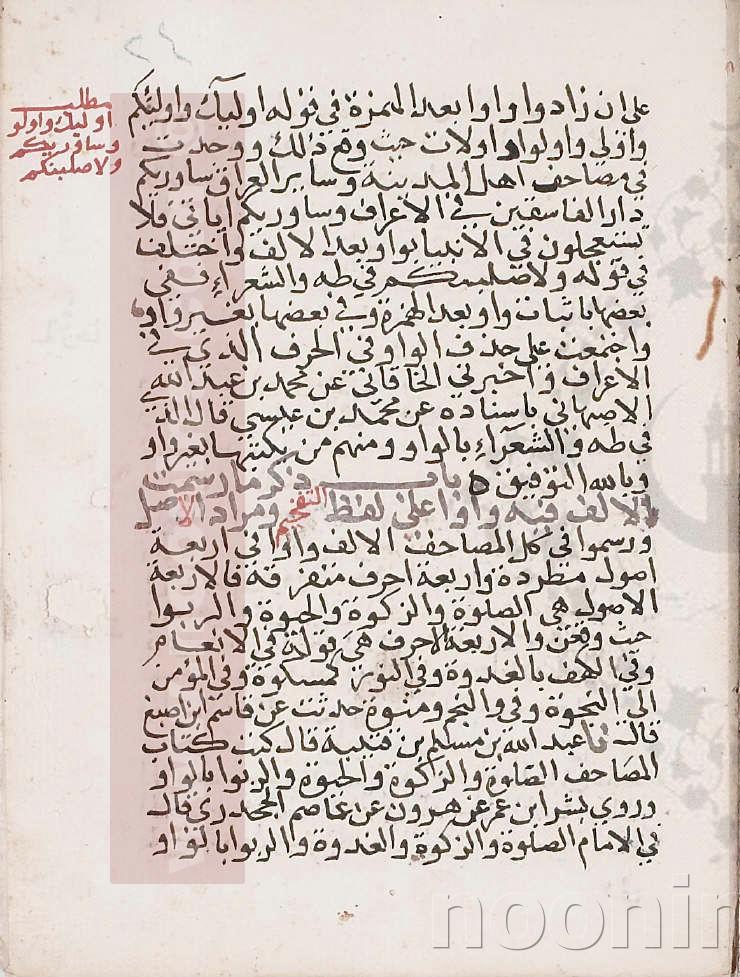 ٢٤
على ان زادوا واوا بعد الهمزة في قوله اوليك واوليكم
واولي واولوا واولات حيث وقع ذلك ووجدت
في مصاحف اهل المدينة وساير العراق ساوريكم
دار الفاسقين في الاعراف وساوريكم اياتي فلا
تستعجلون في الانبيا بواو بعد الالف واختلف
في قوله ولاصلبنكم في طه والشعراء ففي
بعضها باثبات واو بعد الهمزة وفي بعضها بغير واو
واجتمعت على حذف الواو في الحرف الذي في
الاعراف واخبرني الخاقاني عن محمد بن عبد الله
الاصبهاني باسناده عن محمد بن عيسي قال الذي
في طه والشعرآء بالواو ومنهم من يكتبها بغير واو
وبالله التوفيق باب ذكر ما رسمت
الالف فيه واوا على لفظ التفخيم ومراد الاصل
ورسموا في كل المصاحف الالف واوا في اربعة
اصول مطردة واربعة احرف متفرقة فالاربعة
الاصول هي الصلوة والزكوة والحيوة والربوا
حيث وقعن والاربعة الاحرف هي قوله في الانعام
وفي الكهف بالغدوة وفي النور كمشكوة وفي المؤمن
الى النجوة وفي والنجم ومنوة حدثت عن قاسم ابن اصبغ
قال نا عبد الله بن مسلم بن قتيبة قال كتب كتاب
المصاحف الصلوة والزكوة والحيوة والربوا بالواو
وروي بشر ابن عمر عن هرون عن عاصم الجحدري قال
في الامام الصلوة والزكوة والغدوة والربوا بالواو
مطلب
اوليك واولو
وساوريكم
ولاصلبنكم
noonin